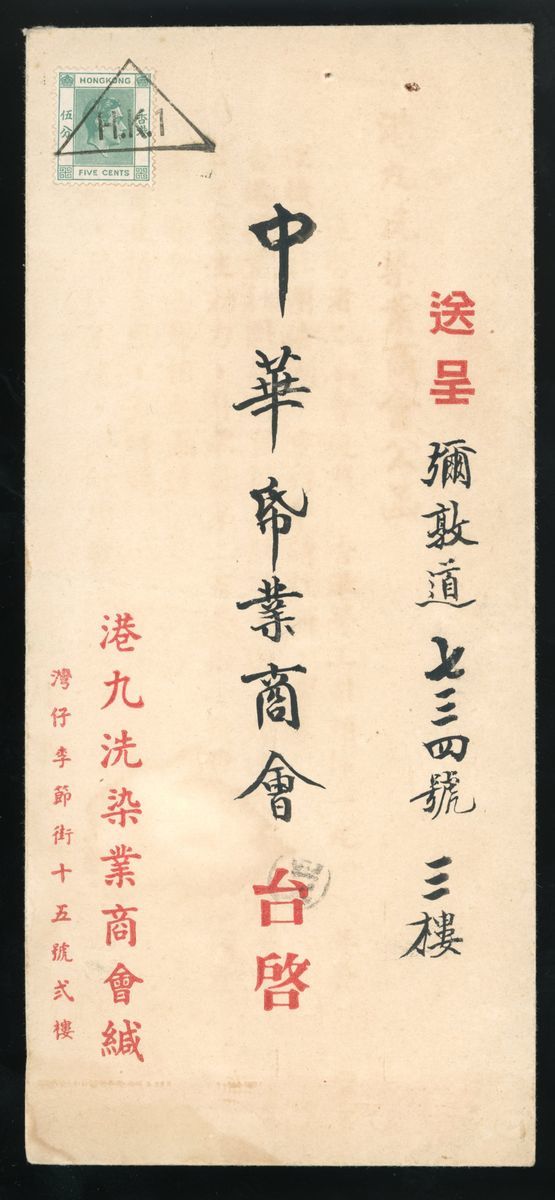 HONGKONG
伍分
香港
FIVE CENTS
H.K.1
送呈 彌敦道七三四號三樓
中華帋業商會 台啓
港九洗染業商會緘
灣仔李節街十五號弍樓